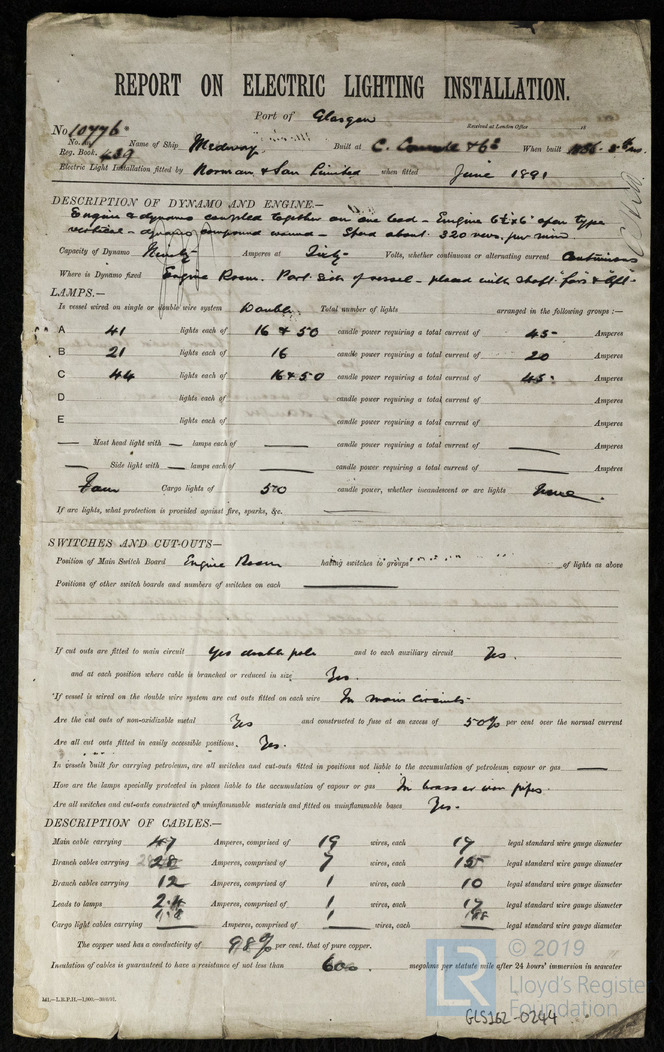 REPORT ON ELECTRIC LIGHTING INSTALLATION.
Port of Glasgow Received at London Office 18
No. 10776
No. in Reg. Book. 439 Name of Ship Medway Built at C. & Co When built 1886.
Electric Light Installation fitted by Norman & Son Limited when fitted June 1891
DESCRIPTION OF DYNAMO AND ENGINE.—
Engine & dynamo coupled together on one bed - Engine 6½ x 6" open type
vertical - dynamo compound wound - Speed about 320 revs. per min.
Capacity of Dynamo Ninety Amperes at Sixty Volts, whether continuous or alternating current Continuous
Where is Dynamo fixed Engine Room. Port side of vessel - placed with shaft fore & aft.
LAMPS.—
Is vessel wired on single or double wire system Double Total number of lights arranged in the following groups :—
A 41 lights each of 16 & 50 candle power requiring a total current of 45 Amperes
B 21 lights each of 16 candle power requiring a total current of 20 Amperes
C 44 lights each of 16 & 50 candle power requiring a total current of 45 Amperes
D lights each of candle power requiring a total current of Amperes
E lights each of candle power requiring a total current of Amperes
— Mast head light with — lamps each of — candle power requiring a total current of — Amperes
— Side light with — lamps each of — candle power requiring a total current of — Amperes
Four Cargo lights of 50 candle power, whether incandescent or arc lights
If arc lights, what protection is provided against fire, sparks, &c. —
SWITCHES AND CUT-OUTS—
Position of Main Switch Board Engine Room having switches to groups of lights as above
Positions of other switch boards and numbers of switches on each —
If cut outs are fitted to main circuit Yes double pole and to each auxiliary circuit Yes.
and at each position where cable is branched or reduced in size Yes.
If vessel is wired on the double wire system are cut outs fitted on each wire In main circuits
Are the cut outs of non-oxidizable metal Yes and constructed to fuse at an excess of 50% per cent over the normal current
Are all cut outs fitted in easily accessible positions. Yes.
In vessels built for carrying petroleum, are all switches and cut-outs fitted in positions not liable to the accumulation of petroleum vapour or gas —
How are the lamps specially protected in places liable to the accumulation of vapour or gas In brass or iron pipes.
Are all switches and cut-outs constructed of uninflammable materials and fitted on uninflammable bases Yes.
DESCRIPTION OF CABLES.—
Main cable carrying 47 Amperes, comprised of 19 wires, each 17 legal standard wire gauge diameter
Branch cables carrying 28 Amperes, comprised of 7 wires, each 15 legal standard wire gauge diameter
Branch cables carrying 12 Amperes, comprised of 1 wires, each 10 legal standard wire gauge diameter
Leads to lamps 2.4 Amperes, comprised of 1 wires, each 17 legal standard wire gauge diameter
1.8 1 18
Cargo light cables carrying — Amperes, comprised of — wires, each — legal standard wire gauge diameter
The copper used has a conductivity of 98% per cent. that of pure copper.
Insulation of cables is guaranteed to have a resistance of not less than 600 megohms per statute mile after 24 hours' immersion in seawater
© 2019
LR Lloyd's Register
Foundation
GLS162-0244